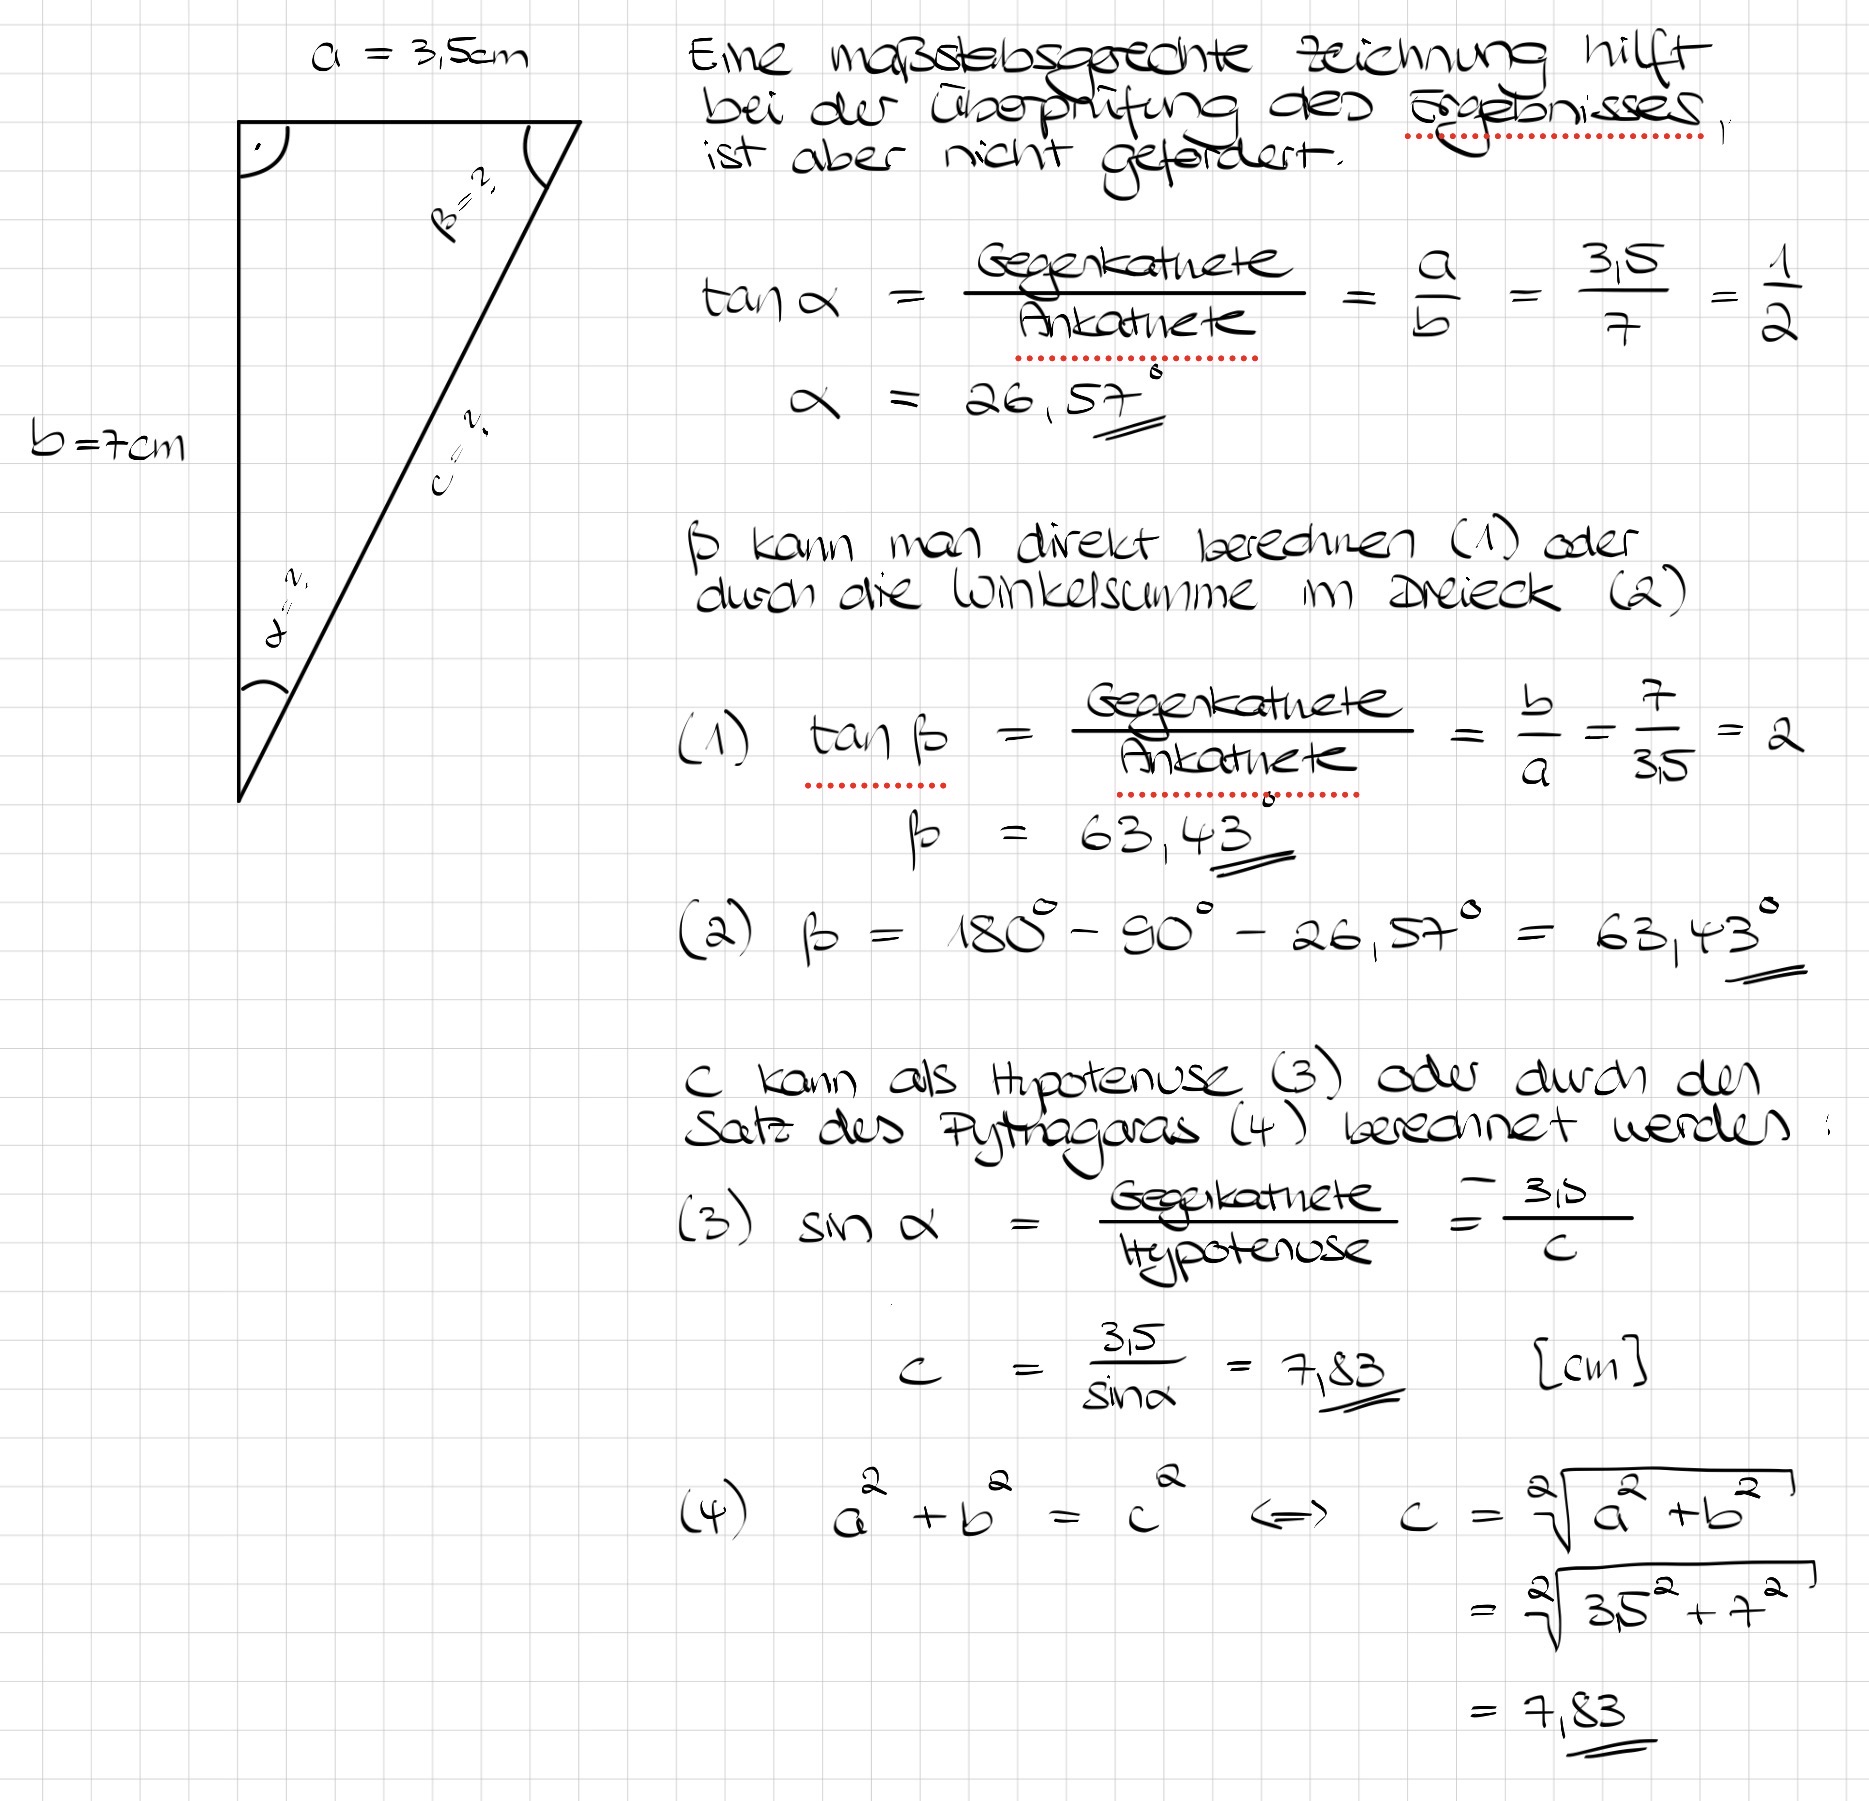 a = 3,5cm
b = 7cm
c = ?
β = ?
α = ?
Eine maßstabsgerechte Zeichnung hilft
bei der Überprüfung des Ergebnisses,
ist aber nicht gefordert.
tan α = Gegenkathete / Ankathete = a / b = 3,5 / 7 = 1 / 2
α = 26,57°
β kann man direkt berechnen (1) oder
durch die Winkelsumme im Dreieck (2)
(1) tan β = Gegenkathete / Ankathete = b / a = 7 / 3,5 = 2
β = 63,43°
(2) β = 180° - 90° - 26,57° = 63,43°
c kann als Hypotenuse (3) oder durch den
Satz des Pythagoras (4) berechnet werden :
(3) sin α = Gegenkathete / Hypotenuse = 3,5 / c
c = 3,5 / sin α = 7,83 [cm]
(4) a² + b² = c² <=> c = ²√(a² + b²)
= ²√(3,5² + 7²)
= 7,83